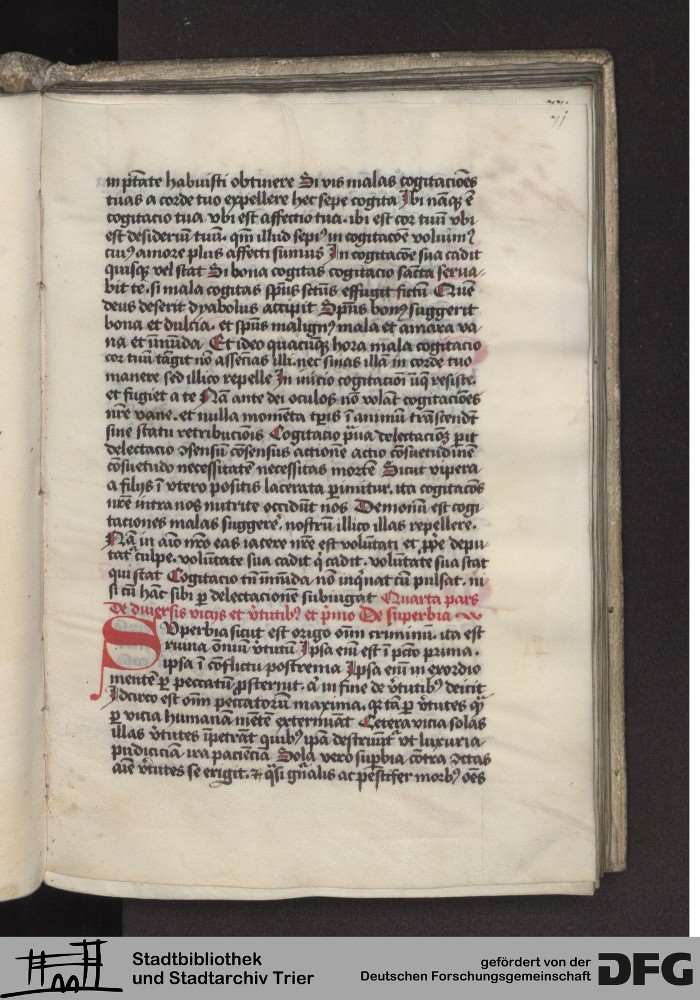 in ptate habuisti obtinere Si vis malas cogitacioēs
tuas a corde tuo expellere hec sepe cogita Ibi nāqʒ ē
cogitacio tua vbi est affectio tua. ibi est cor tuū vbi
est desideriū tuū. qm̄ illud sepiꝰ in cogitacōe voluimꝰ
cuiꝰ amore plus affecti sumus In cogitacōe sua cadit
quisqʒ vel stat Si bona cogitas cogitacio sācta serua-
bit te. si mala cogitas spūs sctūs effugit fictū Quē
deus deserit dyabolus accipit Spūs bonꝰ suggerit
bona et dulcia. et spūs malignꝰ mala et amara va
na et īmūda Et ideo quacūqʒ hora mala cogitacio
cor tuū tāgit nō assēcias illi. nec sinas illā in corde tuo
manere sed illico repelle In inicio cogitacioni resiste.
et fugiet a te Nā ante dei oculos nō volāt cogitacioēs
nr̄e vane. et nulla momēta tꝑis ī animū trāscendt̄
sine statu retribucionis Cogitacio ꝑua delectacioēʒ ꝑit
delectacio ↄsensū cōsensus actionē actio cōsuetudinē
cōsuetudo necessitatē necessitas mortē Sicut vipera
a filijs ī vtero positis lacerata ꝑimitur. ita cogitacoēs
nr̄e intra nos nutrite occidūt nos Demoniū est cogi
taciones malas suggere᷒. nostrū illico illas repellere.
Nā in aīo nr̄o eas iacere nr̄e est volūtati et ꝓpe depu
tat᷒ culpe. voluntate sua cadit q̇ cadit. volūtate sua stat
qui stat Cogitacio tn̄ īmūda nō inq̇nat cū pulsat. ni
si cū hāc sibi ꝑ delectacionē subiugat Quarta pars
de diuersis vicijs et v̓tutibꝰ et p̓mo De superbia
Superbia sicut est origo om̄ criminū. ita est
ruina om̄iū v̓tutū Ipsa em̄ est ī pctō prima.
ipsa ī cōflictu postrema Ipsa em̄ in exordio
mentē ꝑ peccatū ꝓsternit. aut in fine de v̓tutibꝰ deicit
Idcirco est om̄ peccatorū maxima. qꝛ tā ꝑ v̓tutes qᷓ
ꝑ vicia humanā mētē extermīat Cetera vicia solas
illas v̓tutes īpetrāt quibꝰ ipā destruunt᷒ vt luxuria
pudiciciā ira pacienciā Sola vero suꝑbia cōtra cūctas
aīe v̓tutes se erigit. et q̇si gn̄alis ac pestifer morbꝰ oēs
Stadtbibliothek
und Stadtarchiv Trier
gefördert von der
Deutschen Forschungsgemeinschaft
DFG